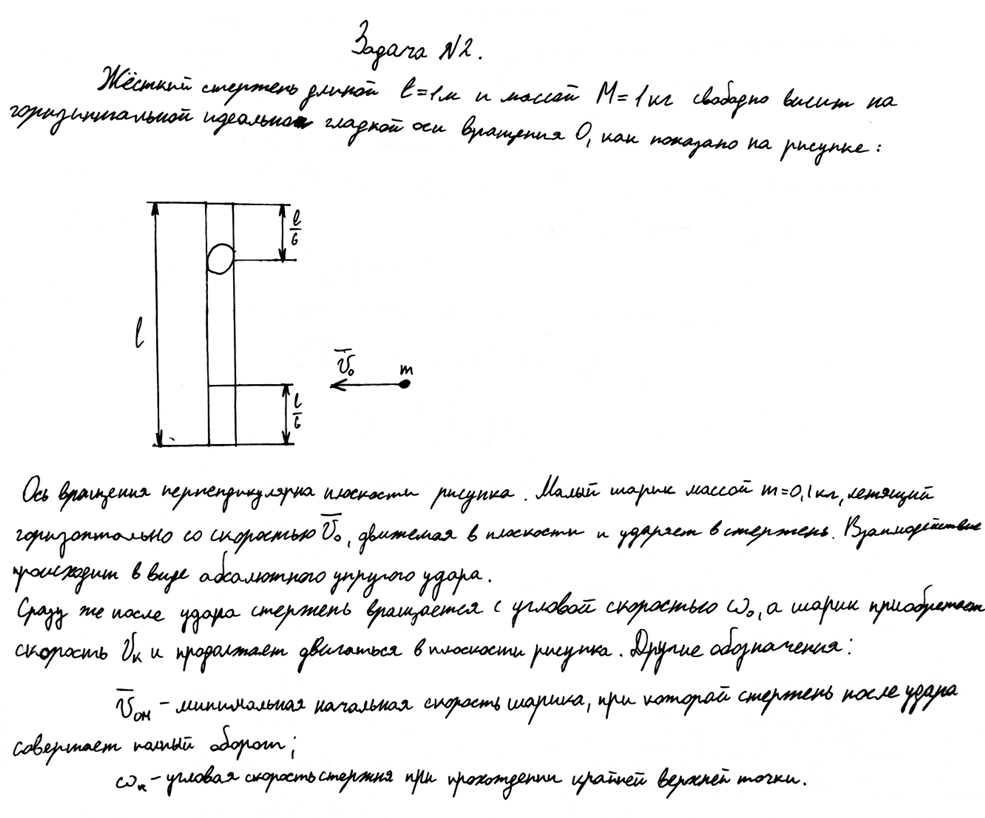 Задача N2.
Жёсткий стержень длиной l=1м и массой M=1кг свободно висит на
горизинтальной идеально гладкой оси вращения О, как показано на рисунке:
l/6
l
v̅₀
m
l/6
Ось вращения перпендикулярна плоскости рисунка. Малый шарик массой m=0,1кг, летящий
горизонтально со скоростью v̅₀, движемая в плоскости и ударяет в стержень. Взаимодействие
происходит в виде абсалютного упругого удара.
Сразу же после удара стержень вращается с угловой скоростью ω₀, а шарик приобретает
скорость v̅ₖ и продолжает двигаться в плоскости рисунка. Другие обозначения:
v̅₀ₘ - минимальная начальная скорость шарика, при которой стержень после удара
совершает полный оборот;
ωₖ - угловая скорость стержня при прохождении крайней верхней точки.